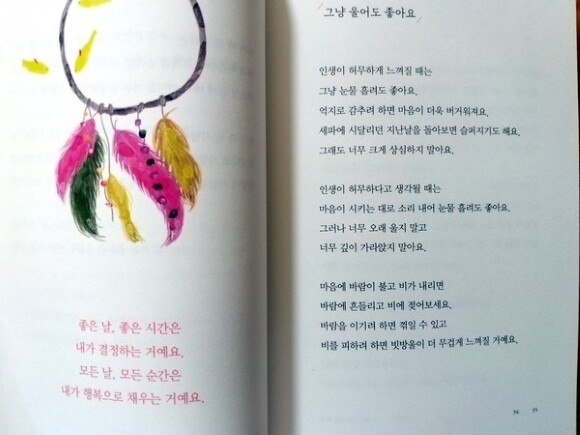 좋은 날, 좋은 시간은
내가 결정하는 거예요.
모든 날, 모든 순간은
내가 행복으로 채우는 거예요.
그냥 울어도 좋아요
인생이 허무하게 느껴질 때는
그냥 눈물 흘려도 좋아요.
억지로 감추려 하면 마음이 더욱 버거워져요.
세파에 시달리던 지난날을 돌아보면 슬퍼지기도 해요.
그래도 너무 크게 상심하지 말아요.
인생이 허무하다고 생각될 때는
마음이 시키는 대로 소리 내어 눈물 흘려도 좋아요.
그러나 너무 오래 울지 말고
너무 깊이 가라앉지 말아요.
마음에 바람이 불고 비가 내리면
바람에 흔들리고 비에 젖어보세요.
바람을 이기려 하면 꺾일 수 있고
비를 피하려 하면 빗방울이 더 무겁게 느껴질 거예요.
34 35